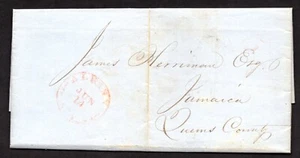 James Herriman Esq.
Jamaica
Queens County